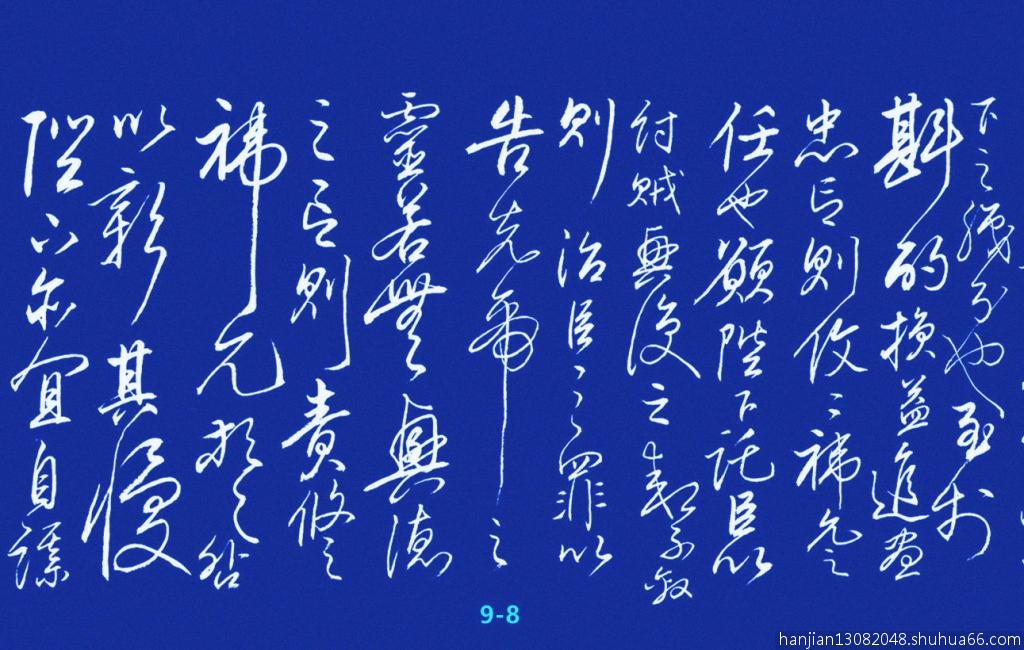 下之職分也至於
斟酌損益進盡
忠言則攸之禕允之
任也願陛下託臣以
討賊興復之效不效
則治臣之罪以
告先帝之
靈若無興德
之言則責攸之
禕允等之咎
以彰其慢
陛下亦宜自謀
9-8
hanjian13082048.shuhua66.com